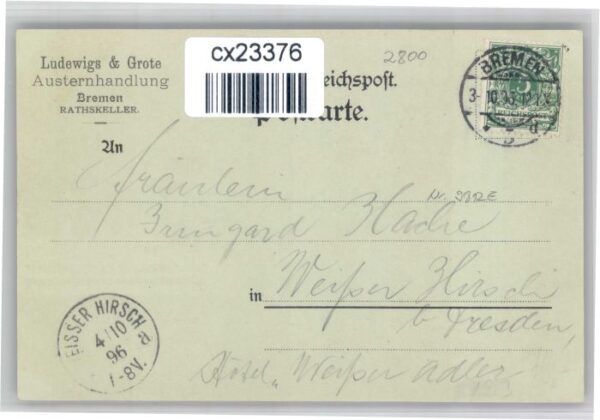 Ludewigs & Grote
Austernhandlung
Bremen
RATHSKELLER.
cx23376
2800
eichspost.
BREMEN
3-10.
5
d
An
Fräulein
Irmgard Hache
in Weißer Hirsch
b. Dresden,
Hotel „Weißer Adler
EISSER HIRSCH
a
4/10
96
7-8V.